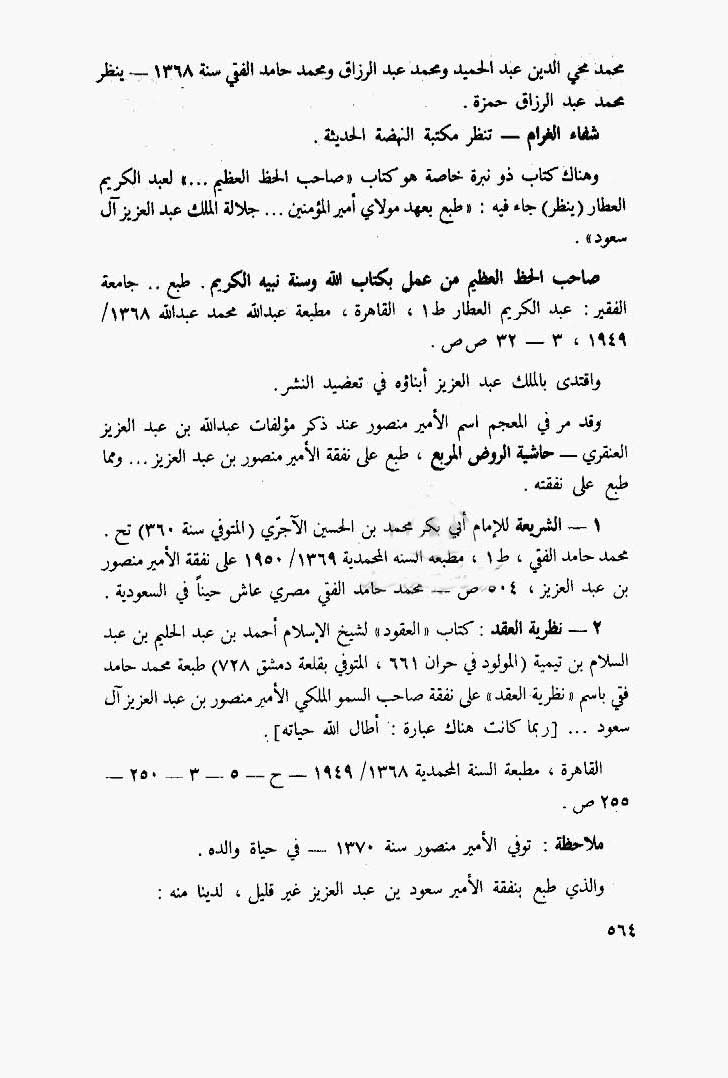 محمد محي الدين عبد الحميد ومحمد عبد الرزاق ومحمد حامد الفقي سنة ١٣٦٨ — ينظر
محمد عبد الرزاق حمزة .
شفاء الغرام — تنظر مكتبة النهضة الحديثة .
وهناك كتاب ذو نبرة خاصة هو كتاب «صاحب الحظ العظيم ...» لعبد الكريم
العطار (ينظر) جاء فيه : «طبع بعهد مولاي أمير المؤمنين ... جلالة الملك عبد العزيز آل
سعود» .
صاحب الحظ العظيم من عمل بكتاب الله وسنة نبيه الكريم . طبع .. جامعة
الفقير : عبد الكريم العطار ط١ ، القاهرة ، مطبعة عبدالله محمد عبدالله ١٣٦٨/
١٩٤٩ ، ٣ — ٣٢ ص ص .
واقتدى بالملك عبد العزيز أبناؤه في تعضيد النشر .
وقد مر في المعجم اسم الأمير منصور عند ذكر مؤلفات عبدالله بن عبد العزيز
العنقري — حاشية الروض المربع ، طبع على نفقة الأمير منصور بن عبد العزيز ... ومما
طبع على نفقته .
١ — الشريعة للإمام أبي بكر محمد بن الحسين الآجرّي (المتوفي سنة ٣٦٠) تح .
محمد حامد الفقي ، ط١ ، مطبعه السنه المحمدية ١٣٦٩/ ١٩٥٠ على نفقة الأمير منصور
بن عبد العزيز ، ٥٠٤ ص — محمد حامد الفقي مصري عاش حيناً في السعودية .
٢ — نظرية العقد : كتاب «العقود» لشيخ الإسلام أحمد بن عبد الحليم بن عبد
السلام بن تيمية (المولود في حران ٦٦١ ، المتوفي بقلعة دمشق ٧٢٨) طبعة محمد حامد
فقي باسم «نظرية العقد» على نفقة صاحب السمو الملكي الأمير منصور بن عبد العزيز آل
سعود ... [ربما كانت هناك عبارة : أطال الله حياته] .
القاهرة ، مطبعة السنة المحمدية ١٣٦٨/ ١٩٤٩ — ح — ٥ — ٣ — ٢٥٠ —
٢٥٥ ص .
ملاحظة : توفي الأمير منصور سنة ١٣٧٠ — في حياة والده .
والذي طبع بنفقة الأمير سعود بن عبد العزيز غير قليل ، لدينا منه :
٥٦٤